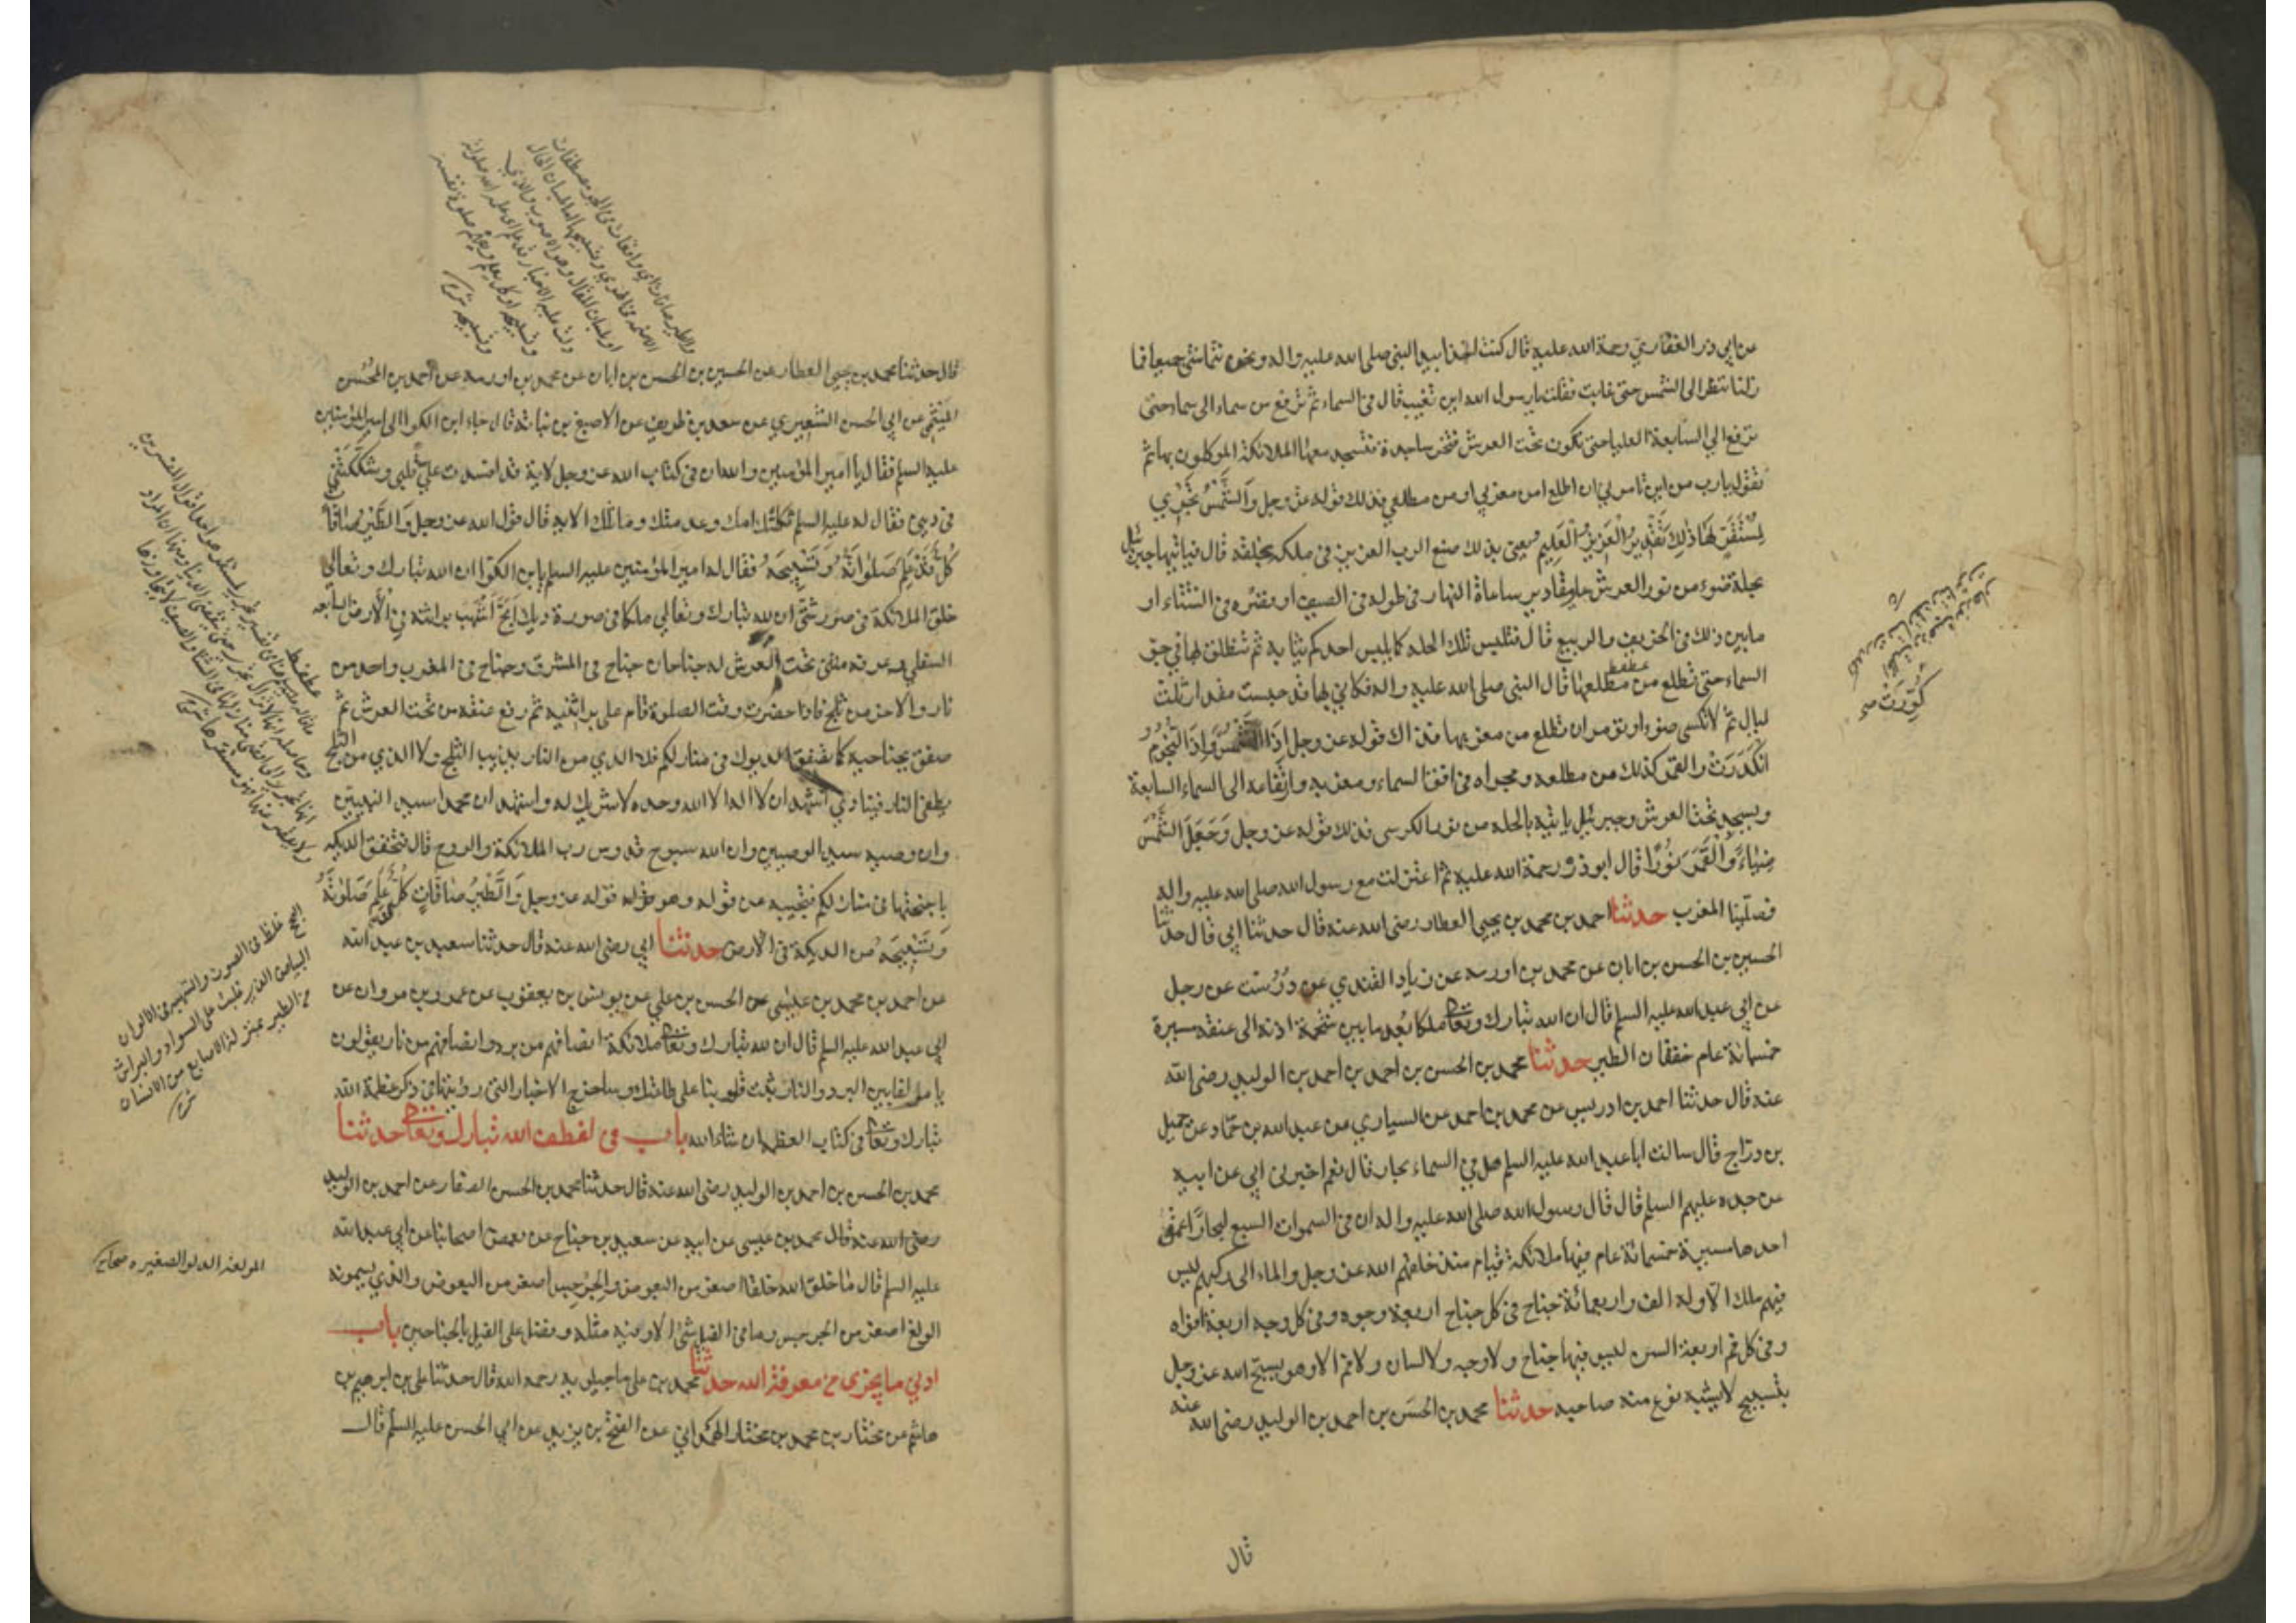 عن ابي ذر الغفاري رحمة الله عليه قال كنت اخذا بيد النبي صلى الله عليه واله ونحن نتماشى جميعا فما
زلنا ننظر الى الشمس حتى غابت فقلت يا رسول الله اين تغيب قال في السماء ثم ترفع من سماء الى سماء حتى
ترفع الى السابعة العليا حتى تكون تحت العرش فتخر ساجدة فتسجد معها الملائكة الموكلون بها ثم
تقول يا رب من اين تامرني ان اطلع امن مغربي او من مطلعي فذلك قوله عز وجل وَالشَّمْسُ تَجْرِي
لِمُسْتَقَرٍّ لَهَا ذٰلِكَ تَقْدِيرُ الْعَزِيزِ الْعَلِيمِ يعني بذلك صنع الرب العزيز في ملكه بخلقه قال فياتيها جبرئيل
بحلة ضوء من نور العرش على مقادير ساعات النهار في طوله في الصيف او قصره في الشتاء او
ما بين ذلك في الخريف والربيع قال فتلبس تلك الحلة كما يلبس احدكم ثيابه ثم تنطلق بها في جو
السماء حتى تطلع من مطلعها قال النبي صلى الله عليه واله فكاني بها قد حبست مقدار ثلث
ليال ثم لا تكسى ضوءا وتؤمر ان تطلع من مغربها فذلك قوله عز وجل اِذَا الشَّمْسُ وَاِذَا النُّجُومُ
انْكَدَرَتْ والقمر كذلك من مطلعه ومجراه في افق السماء ومغربه وارتفاعه الى السماء السابعة
ويسجد تحت العرش وجبرئيل ياتيه بالحلة من نور الكرسي فذلك قوله عز وجل وَجَعَلَ الشَّمْسَ
ضِيَاءً وَالْقَمَرَ نُورًا قال ابو ذر رحمة الله عليه ثم اعتزلت مع رسول الله صلى الله عليه واله
فصلينا المغرب حدثنا احمد بن محمد بن يحيى العطار رضى الله عنه قال حدثنا ابي قال حدثنا
الحسين بن الحسن بن ابان عن محمد بن اورمة عن زياد القندي عن درست عن رجل
عن ابي عبد الله عليه السلم قال ان الله تبارك وتعالى ملكا بعد ما بين شحمة اذنه الى عنقه مسيرة
خمسمائة عام خفقان الطير حدثنا محمد بن الحسن بن احمد بن احمد بن الوليد رضى الله
عنه قال حدثنا احمد بن ادريس عن محمد بن احمد عن السياري عن عبد الله بن حماد عن جميل
بن دراج قال سالت ابا عبد الله عليه السلم هل في السماء بحار قال نعم اخبرني ابي عن ابيه
عن جده عليهم السلم قال قال رسول الله صلى الله عليه واله ان في السموات السبع لبحارا عمق
احدها مسيرة خمسمائة عام فيها ملائكة قيام منذ خلقهم الله عز وجل والماء الى ركبهم ليس
فيهم ملك الا وله الف واربعمائة جناح في كل جناح اربعة وجوه وفي كل وجه اربعة افواه
وفي كل فم اربعة السن ليس فيها جناح ولا وجه ولا لسان ولا فم الا وهو يسبح الله عز وجل
بتسبيح لا يشبه نوع منه صاحبه حدثنا محمد بن الحسن بن احمد بن الوليد رضى الله عنه
قال
كُوِّرَتْ صح
قال حدثنا محمد بن يحيى العطار عن الحسين بن الحسن بن ابان عن محمد بن اورمة عن احمد بن الحسن
الميثمي عن ابي الحسن الشعيري عن سعد بن طريف عن الاصبغ بن نباتة قال جاء ابن الكوا الى امير المؤمنين
عليه السلم فقال يا امير المؤمنين والله ان في كتاب الله عز وجل لاية قد افسدت علي قلبي وشككتني
في ديني فقال له عليه السلم ثكلتك امك وعدمتك وما تلك الاية قال قول الله عز وجل وَالطَّيْرُ صَافَّاتٍ
كُلٌّ قَدْ عَلِمَ صَلَاتَهُ وَتَسْبِيحَهُ فقال له امير المؤمنين عليه السلم يا ابن الكوا ان الله تبارك وتعالى
خلق الملائكة في صور شتى ان لله تبارك وتعالى ملكا في صورة ديك ابح اشهب براثنه في الارض السابعة
السفلى وعرفه مثنى تحت العرش له جناحان جناح في المشرق وجناح في المغرب واحد من
نار والاخر من ثلج فاذا حضرت وقت الصلوة قام على براثنيه ثم رفع عنقه من تحت العرش ثم
صفق بجناحيه كما تصفق الديوك في منازلكم فلا الذي من النار يذيب الثلج ولا الذي من الثلج
يطفئ النار فينادي اشهد ان لا اله الا الله وحده لا شريك له واشهد ان محمدا سيد النبيين
وان وصيه سيد الوصيين وان الله سبوح قدوس رب الملائكة والروح قال فتخفق الديكة
باجنحتها في منازلكم فتجيبه عن قوله وهو قوله عز وجل وَالطَّيْرُ صَافَّاتٍ كُلٌّ قَدْ عَلِمَ صَلَاتَهُ
وَتَسْبِيحَهُ من الديكة في الارض حدثنا ابي رضى الله عنه قال حدثنا سعد بن عبد الله
عن احمد بن محمد بن عيسى عن الحسن بن علي عن يونس بن يعقوب عن عمرو بن مروان عن
ابي عبد الله عليه السلم قال ان لله تبارك وتعالى ملائكة انصافهم من برد وانصافهم من نار يقولون
يا مؤلفا بين البرد والنار ثبت قلوبنا على طاعتك وساخرج الاخبار التي رويتها في ذكر عظمة الله
تبارك وتعالى في كتاب العظمة ان شاء الله باب في لطف الله تبارك وتعالى حدثنا
محمد بن الحسن بن احمد بن الوليد رضى الله عنه قال حدثنا محمد بن الحسن الصفار عن احمد بن الوليد
رضى الله عنه قال محمد بن عيسى عن ابيه عن سعيد بن جناح عن بعض اصحابنا عن ابي عبد الله
عليه السلم قال ما خلق الله خلقا اصغر من البعوض والجرجس اصغر من البعوض والذي يسمونه
الولغ اصغر من الجرجس وما في الفيل شئ الا وفيه مثله وفضل على الفيل بالجناحين باب
ادنى ما يجزى من معرفة الله حدثنا محمد بن على ماجيلويه رحمه الله قال حدثنا على بن ابرهيم بن
هاشم عن مختار بن محمد بن مختار الهمداني عن الفتح بن يزيد عن ابي الحسن عليه السلم قال